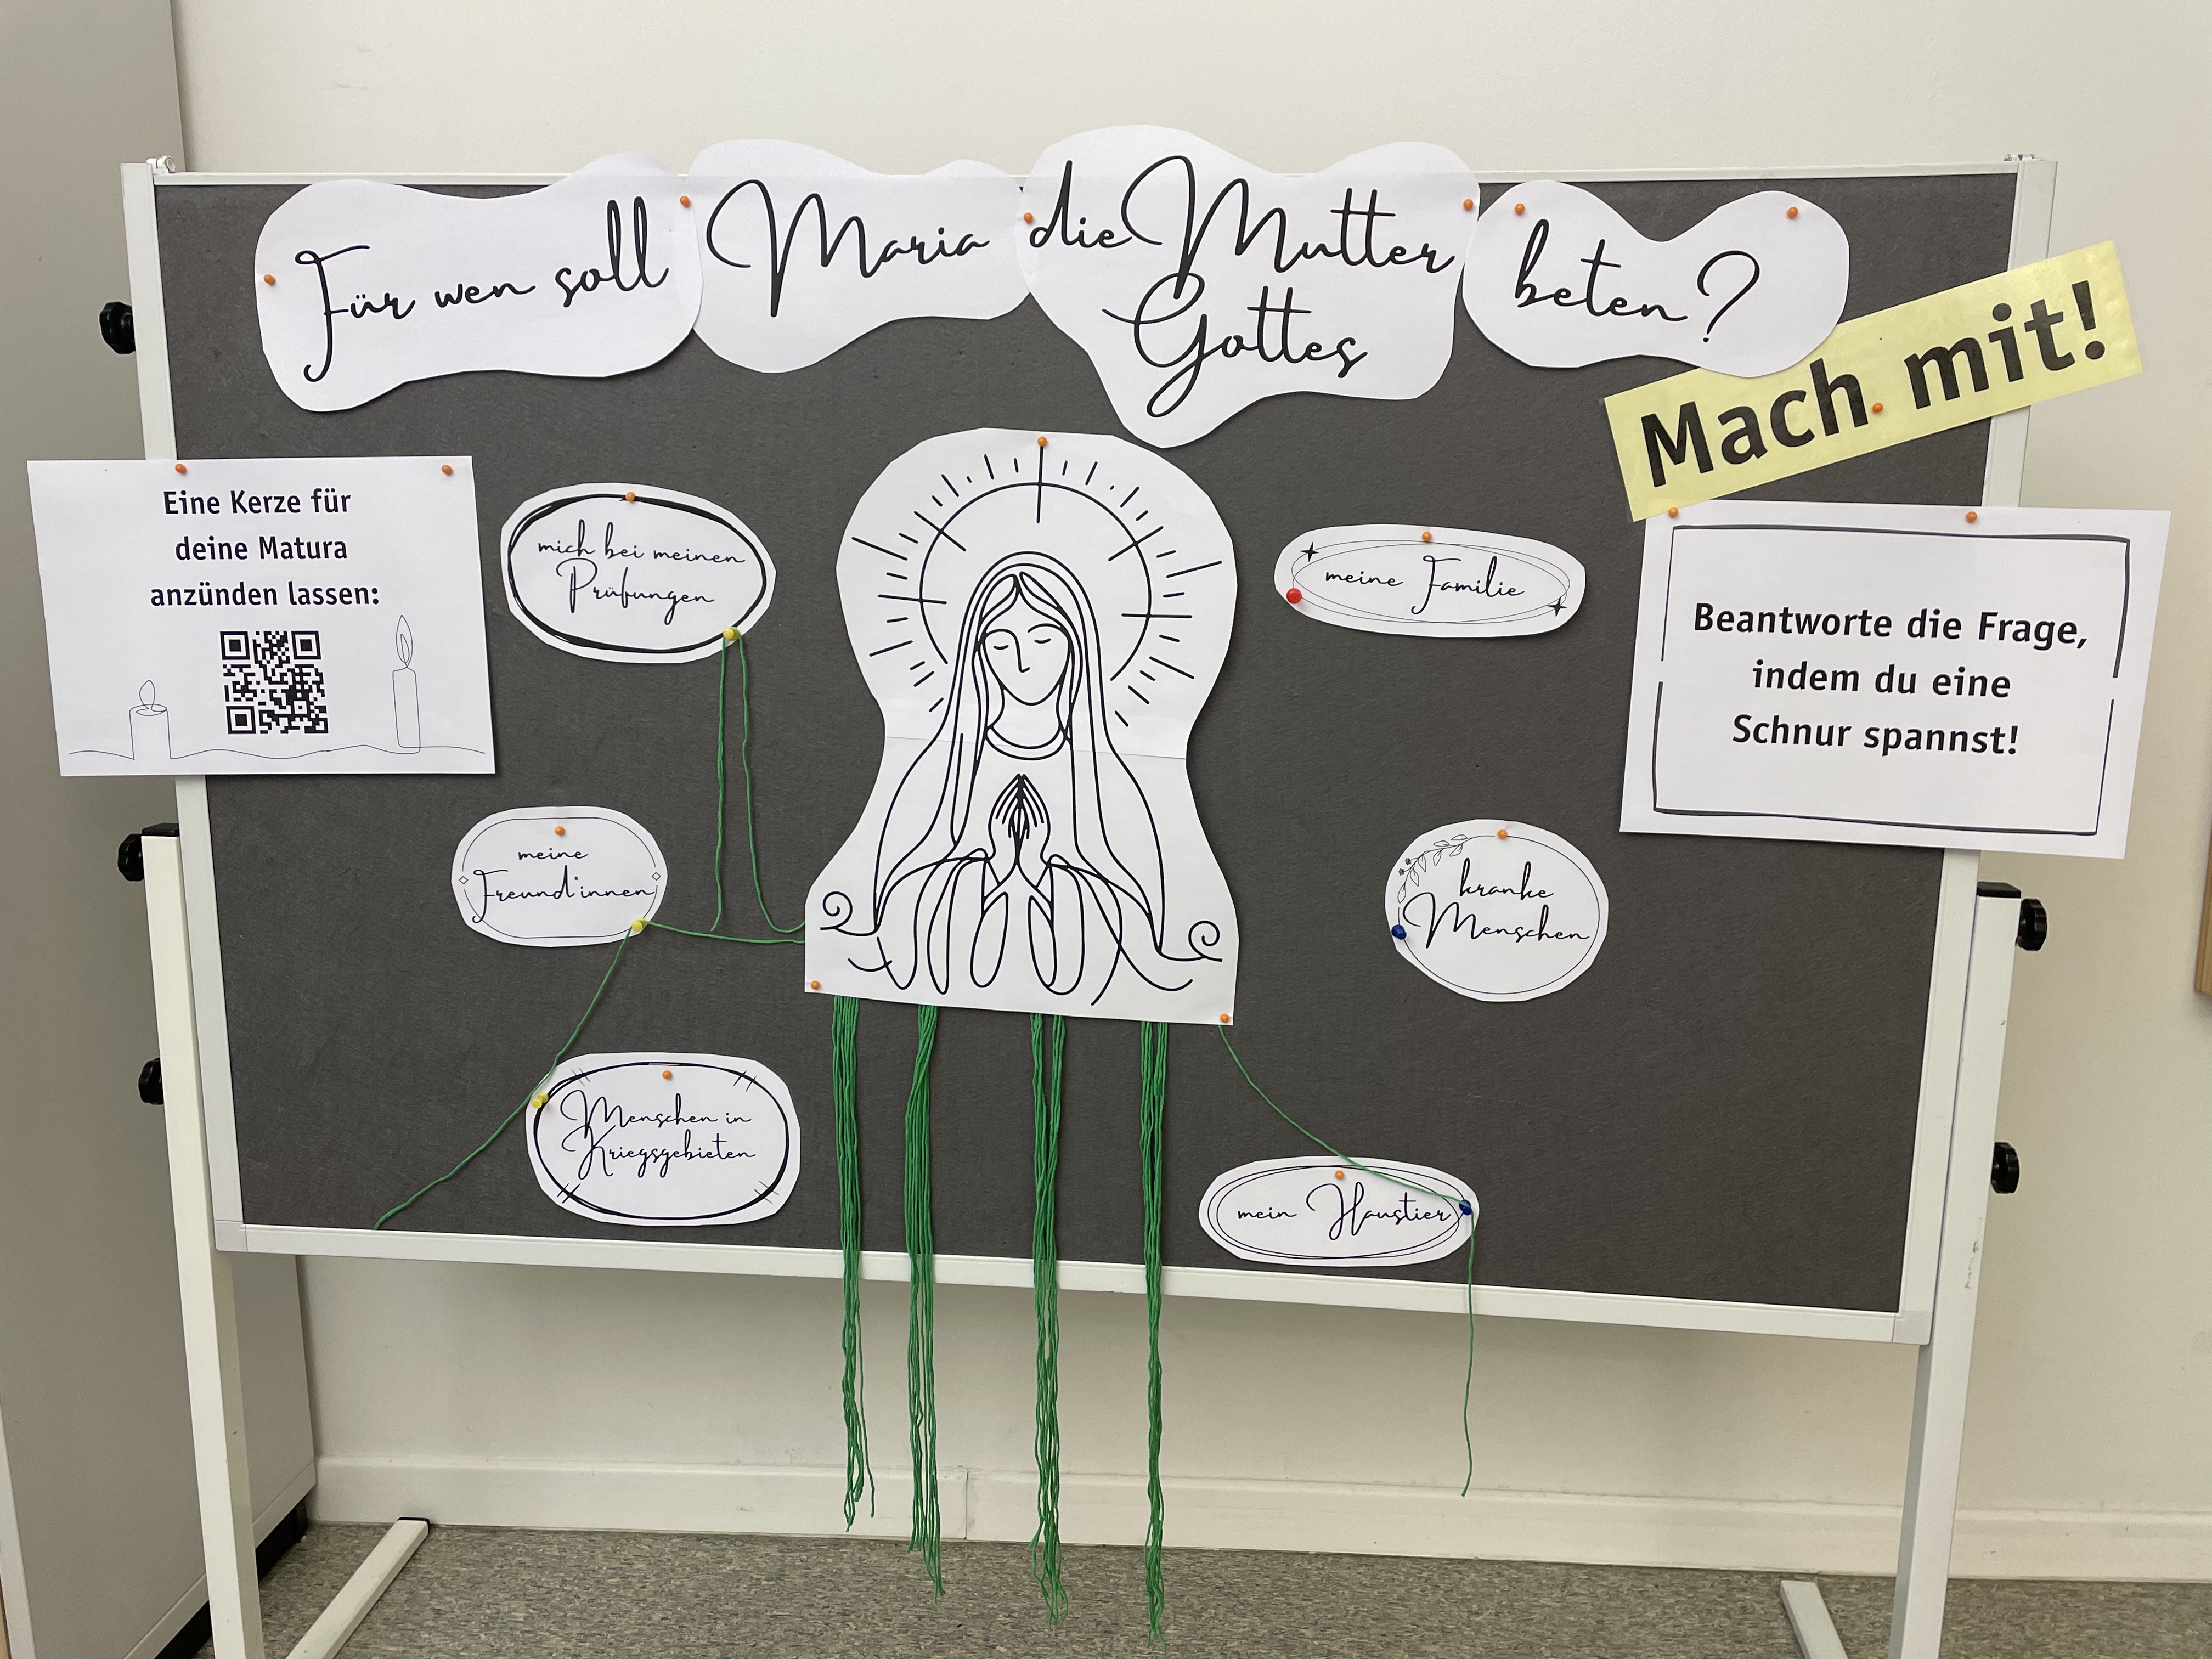 Für wen soll Maria die Mutter
Gottes beten?
Mach mit!
Eine Kerze für
deine Matura
anzünden lassen:
mich bei meinen
Prüfungen
meine Familie
Beantworte die Frage,
indem du eine
Schnur spannst!
meine
Freund*innen
kranke
Menschen
Menschen in
Kriegsgebieten
mein Haustier